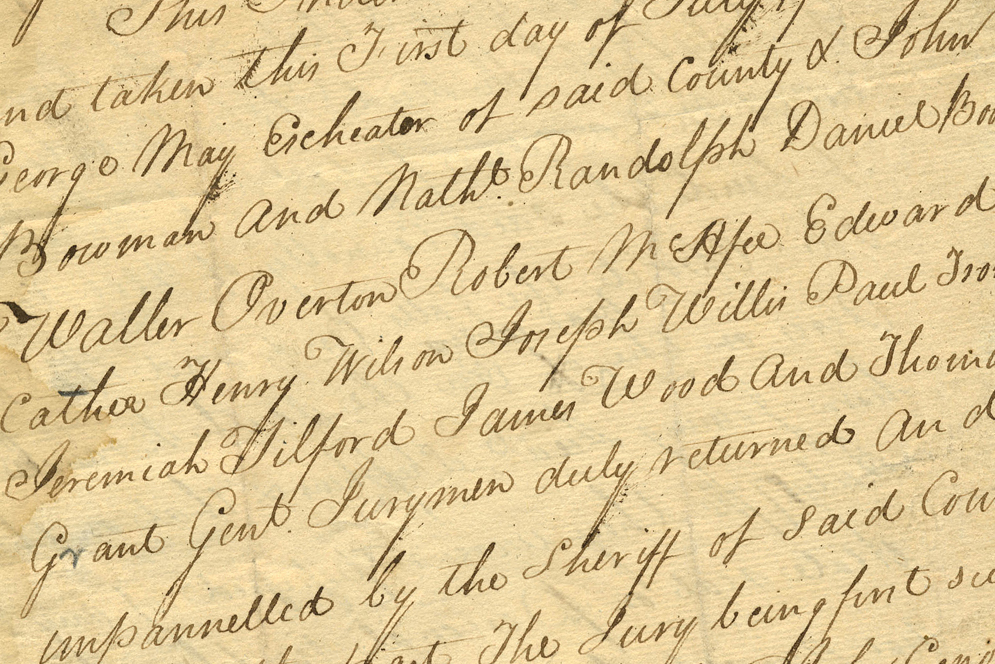 This
and taken this First day of July
George May Escheator of said County & John
Bowman and Nathl. Randolph Daniel
Waller Overton Robert McAfee Edward
Cather Henry Wilson Joseph Willis Paul
Jeremiah Tilford James Wood and Thomas
Grant Gent Jurymen duly returned and
impannelled by the Sheriff of said
The Jury being first